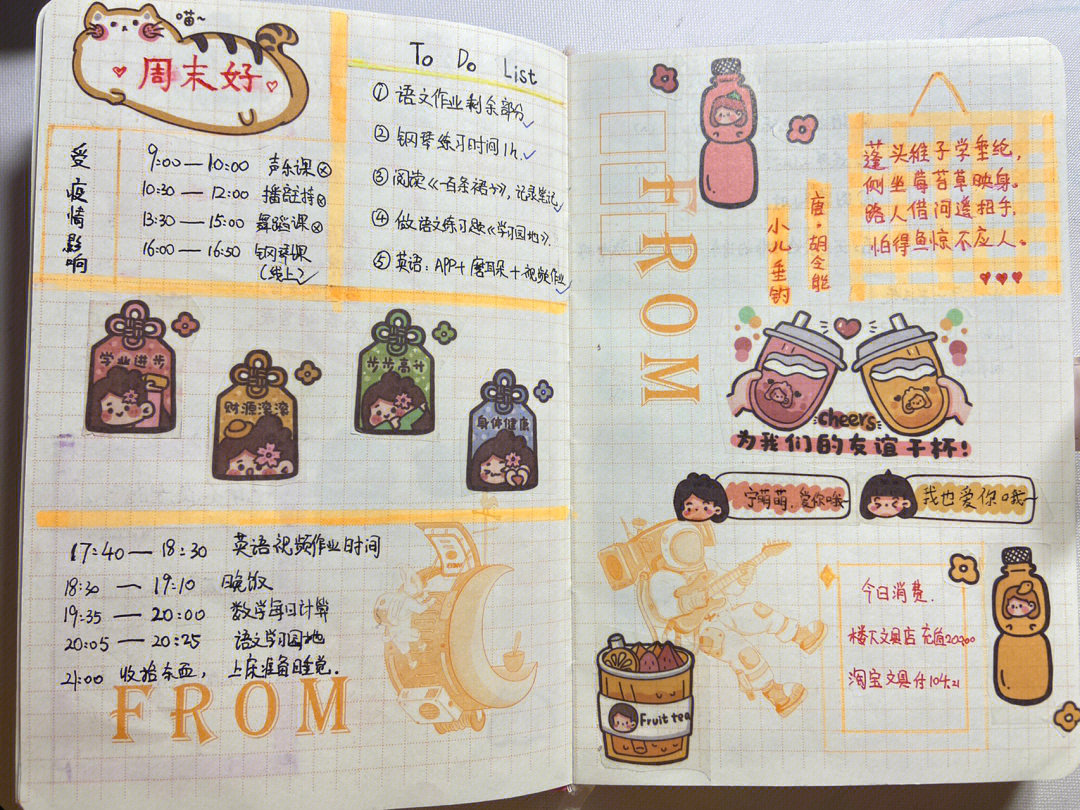 喵~
周末好
受疫情影响
9:00 — 10:00 声乐课ⓧ
10:30 — 12:00 播音主持ⓧ
13:30 — 15:00 舞蹈课ⓧ
16:00 — 16:50 钢琴课
(线上)✓
To Do List
① 语文作业剩余部分✓
② 钢琴练习时间1h.✓
③ 阅读《一百条裙子》,记录笔记✓
④ 做语文练习题《学习园地》.
⑤ 英语:APP+磨耳朵+视频作业✓
学业进步
财源滚滚
步步高升
身体健康
17:40 — 18:30 英语视频作业时间
18:30 — 19:10 晚饭
19:35 — 20:00 数学每日计算
20:05 — 20:25 语文学习园地
21:00 收拾东西,上床准备睡觉.
FROM
FROM
蓬头稚子学垂纶,
侧坐莓苔草映身。
路人借问遥招手,
怕得鱼惊不应人。
唐·胡令能
小儿垂钓
cheers
为我们的友谊干杯!
宁萌萌,爱你哦~
我也爱你哦~
Fruit tea
今日消费.
楼下文具店充值
淘宝文具付104.21